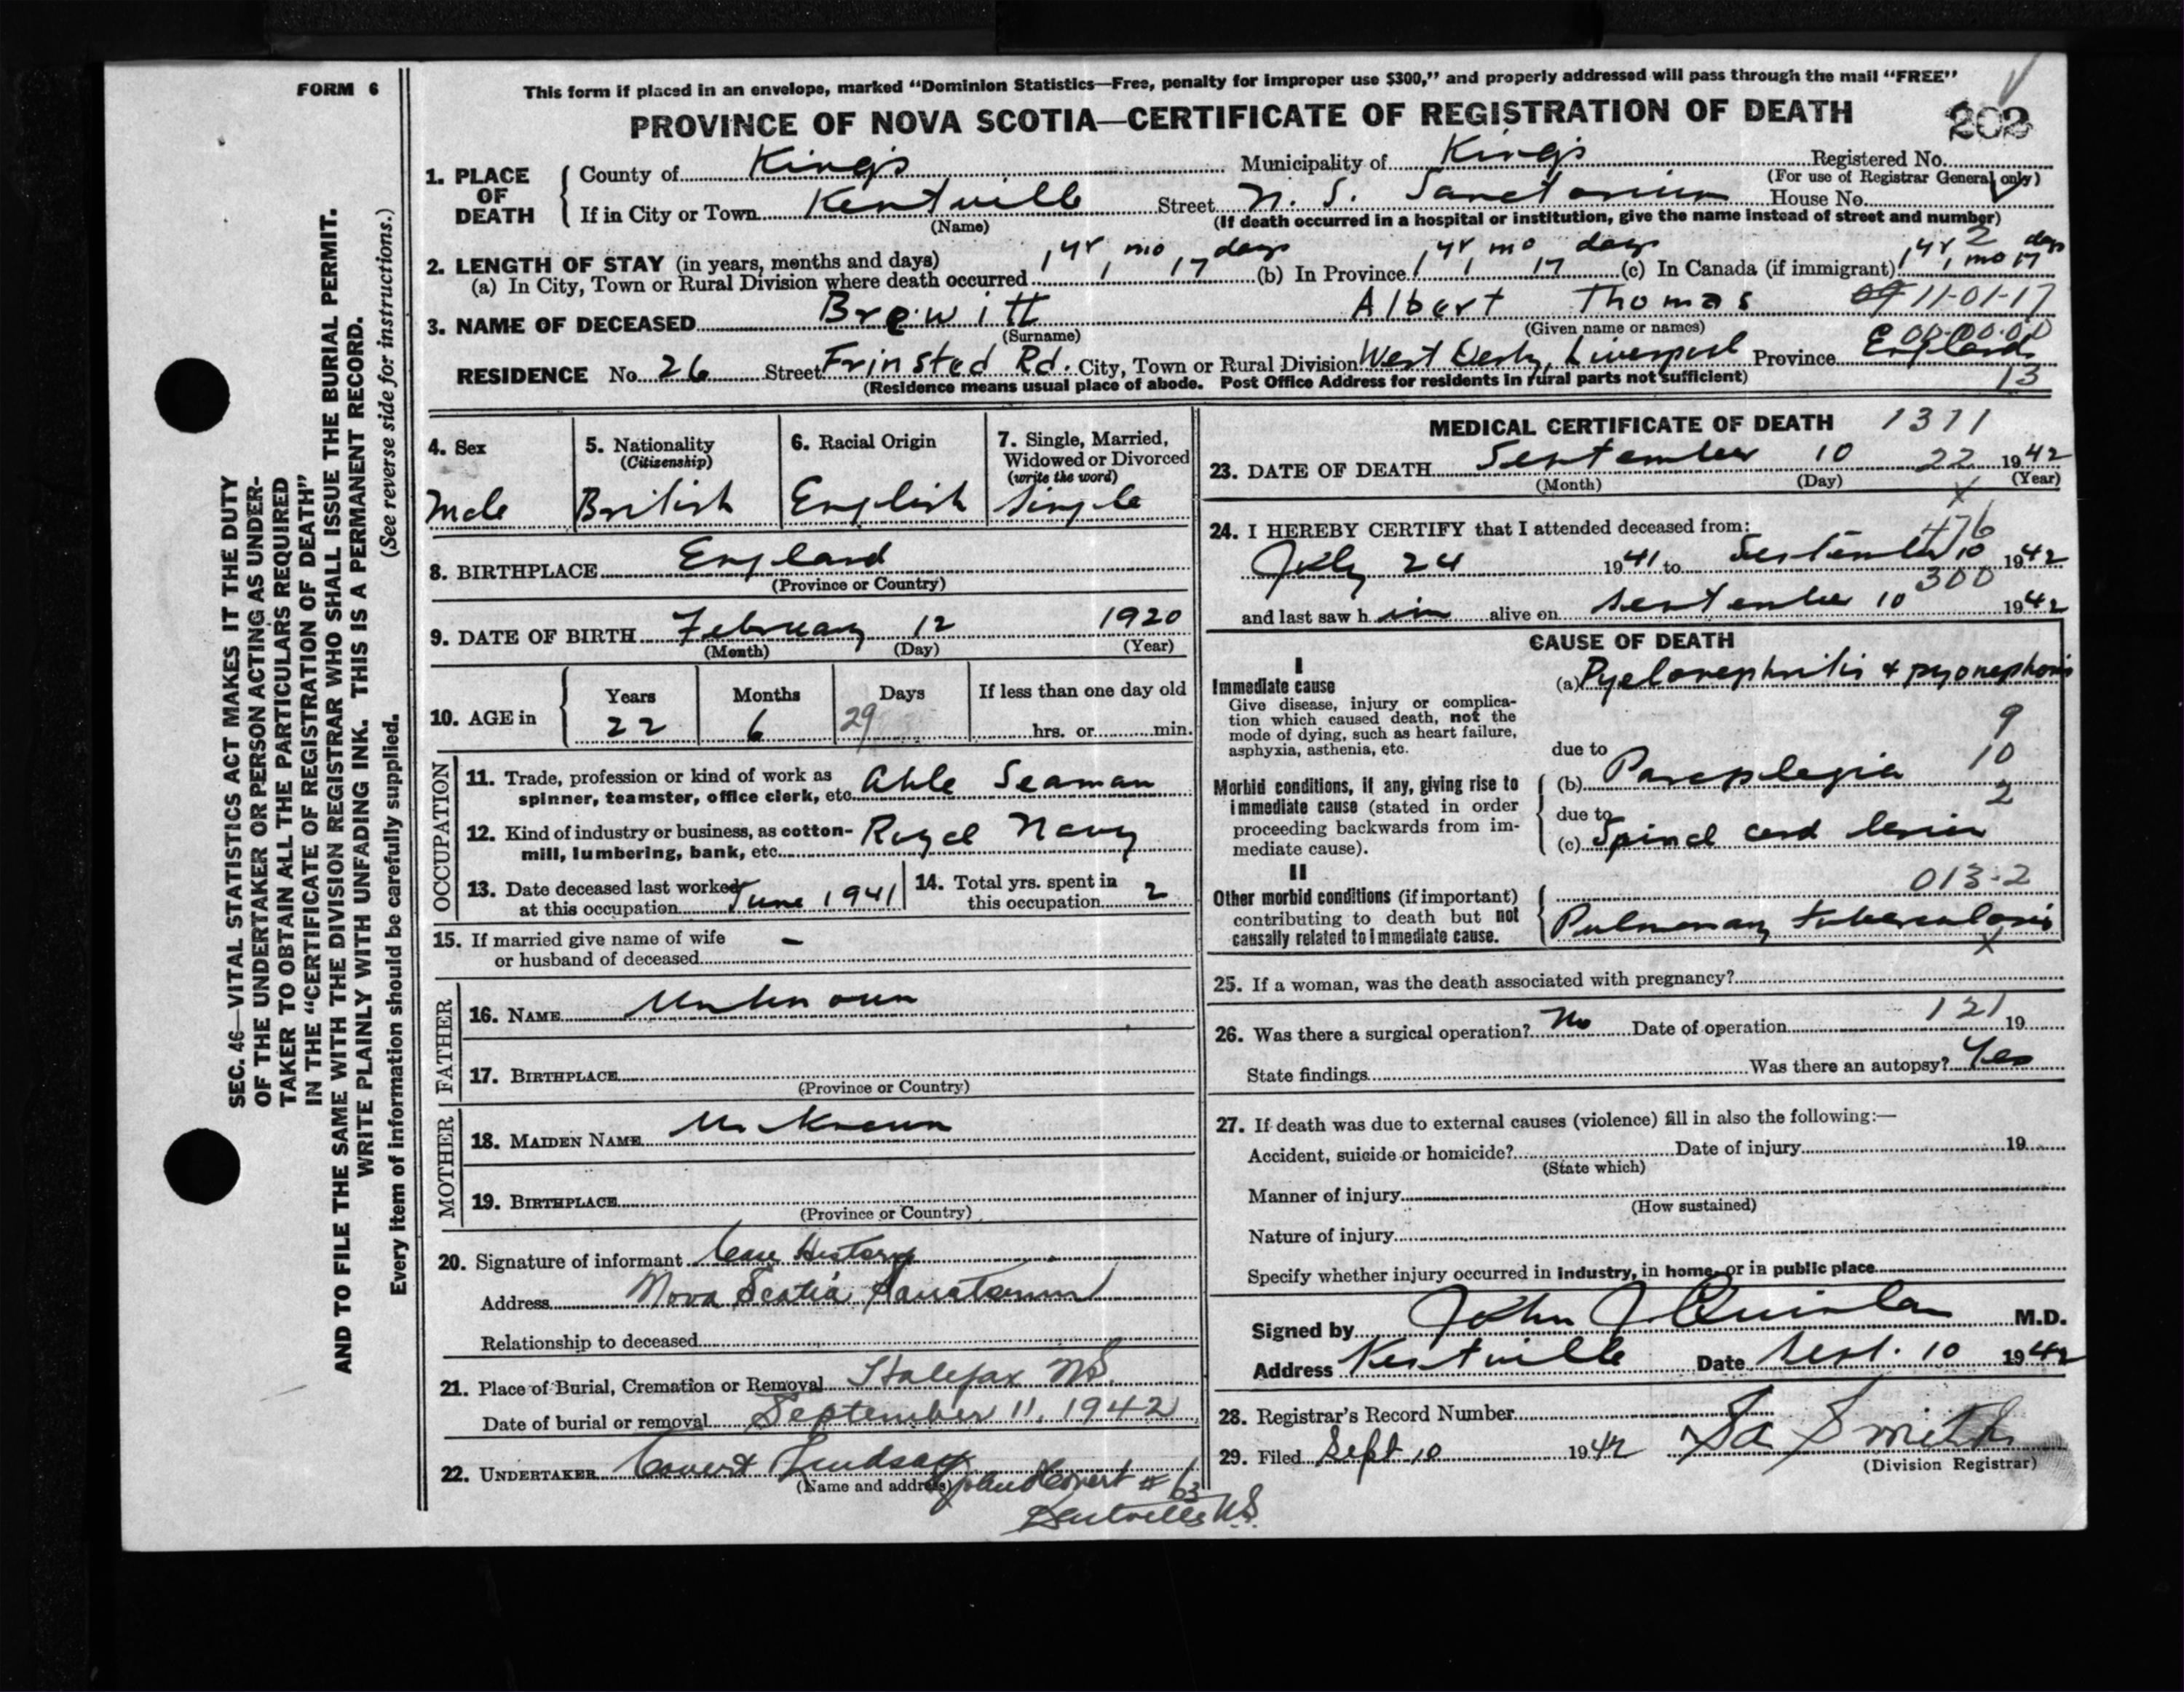 FORM 6
This form if placed in an envelope, marked "Dominion Statistics—Free, penalty for improper use $300," and properly addressed will pass through the mail "FREE"
PROVINCE OF NOVA SCOTIA—CERTIFICATE OF REGISTRATION OF DEATH
202
SEC. 46—VITAL STATISTICS ACT MAKES IT THE DUTY
OF THE UNDERTAKER OR PERSON ACTING AS UNDER-
TAKER TO OBTAIN ALL THE PARTICULARS REQUIRED
IN THE "CERTIFICATE OF REGISTRATION OF DEATH"
AND TO FILE THE SAME WITH THE DIVISION REGISTRAR WHO SHALL ISSUE THE BURIAL PERMIT.
WRITE PLAINLY WITH UNFADING INK. THIS IS A PERMANENT RECORD.
Every item of information should be carefully supplied. (See reverse side for instructions.)
1. PLACE OF DEATH
County of Kings Municipality of Kings Registered No.
(For use of Registrar General only)
If in City or Town Kentville Street N. S. Sanctorium House No.
(Name) (If death occurred in a hospital or institution, give the name instead of street and number)
2. LENGTH OF STAY (in years, months and days)
(a) In City, Town or Rural Division where death occurred 1 yr 1 mo 17 days (b) In Province 1 yr 1 mo 17 days (c) In Canada (if immigrant) 1 yr 1 mo 17 days
2
3. NAME OF DECEASED Brewitt Albert Thomas 11-01-17
(Surname) (Given name or names)
00-00-00
RESIDENCE No. 26 Street Frinsted Rd. City, Town or Rural Division West Derby, Liverpool Province England
(Residence means usual place of abode. Post Office Address for residents in rural parts not sufficient) 13
4. Sex
Male
5. Nationality
(Citizenship)
British
6. Racial Origin
English
7. Single, Married,
Widowed or Divorced
(write the word)
Single
8. BIRTHPLACE England
(Province or Country)
9. DATE OF BIRTH February 12 1920
(Month) (Day) (Year)
10. AGE in
Years Months Days If less than one day old
22 6 29 hrs. or min.
OCCUPATION
11. Trade, profession or kind of work as
spinner, teamster, office clerk, etc. Able Seaman
12. Kind of industry or business, as cotton-
mill, lumbering, bank, etc. Royal Navy
13. Date deceased last worked
at this occupation June 1941
14. Total yrs. spent in
this occupation 2
15. If married give name of wife
or husband of deceased –
FATHER
16. NAME Unknown
17. BIRTHPLACE
(Province or Country)
MOTHER
18. MAIDEN NAME Unknown
19. BIRTHPLACE
(Province or Country)
20. Signature of informant Case History
Address Nova Scotia Sanatorium
Relationship to deceased
21. Place of Burial, Cremation or Removal Halifax NS.
Date of burial or removal September 11, 1942
22. UNDERTAKER Covert Lindsay
(Name and address) # 63
Kentville N.S.
MEDICAL CERTIFICATE OF DEATH 1371
23. DATE OF DEATH September 10 22 1942
(Month) (Day) (Year)
24. I HEREBY CERTIFY that I attended deceased from: 476
July 24 1941 to September 10 1942
300
and last saw him alive on September 10 1942
CAUSE OF DEATH
I
Immediate cause
Give disease, injury or complica-
tion which caused death, not the
mode of dying, such as heart failure,
asphyxia, asthenia, etc.
(a) Pyelonephritis & pyonephosis
9
due to
10
Morbid conditions, if any, giving rise to
immediate cause (stated in order
proceeding backwards from im-
mediate cause).
(b) Paraplegia
2
due to
(c) Spinal cord lesion
II
Other morbid conditions (if important)
contributing to death but not
causally related to immediate cause.
013-2
Pulmonary tuberculosis
25. If a woman, was the death associated with pregnancy?
26. Was there a surgical operation? No Date of operation 121 19
State findings Was there an autopsy? Yes
27. If death was due to external causes (violence) fill in also the following:—
Accident, suicide or homicide? Date of injury 19
(State which)
Manner of injury
(How sustained)
Nature of injury
Specify whether injury occurred in industry, in home, or in public place
Signed by John J Quinlan M.D.
Address Kentville Date Sept. 10 1942
28. Registrar's Record Number
29. Filed Sept 10 1942 Smith
(Division Registrar)